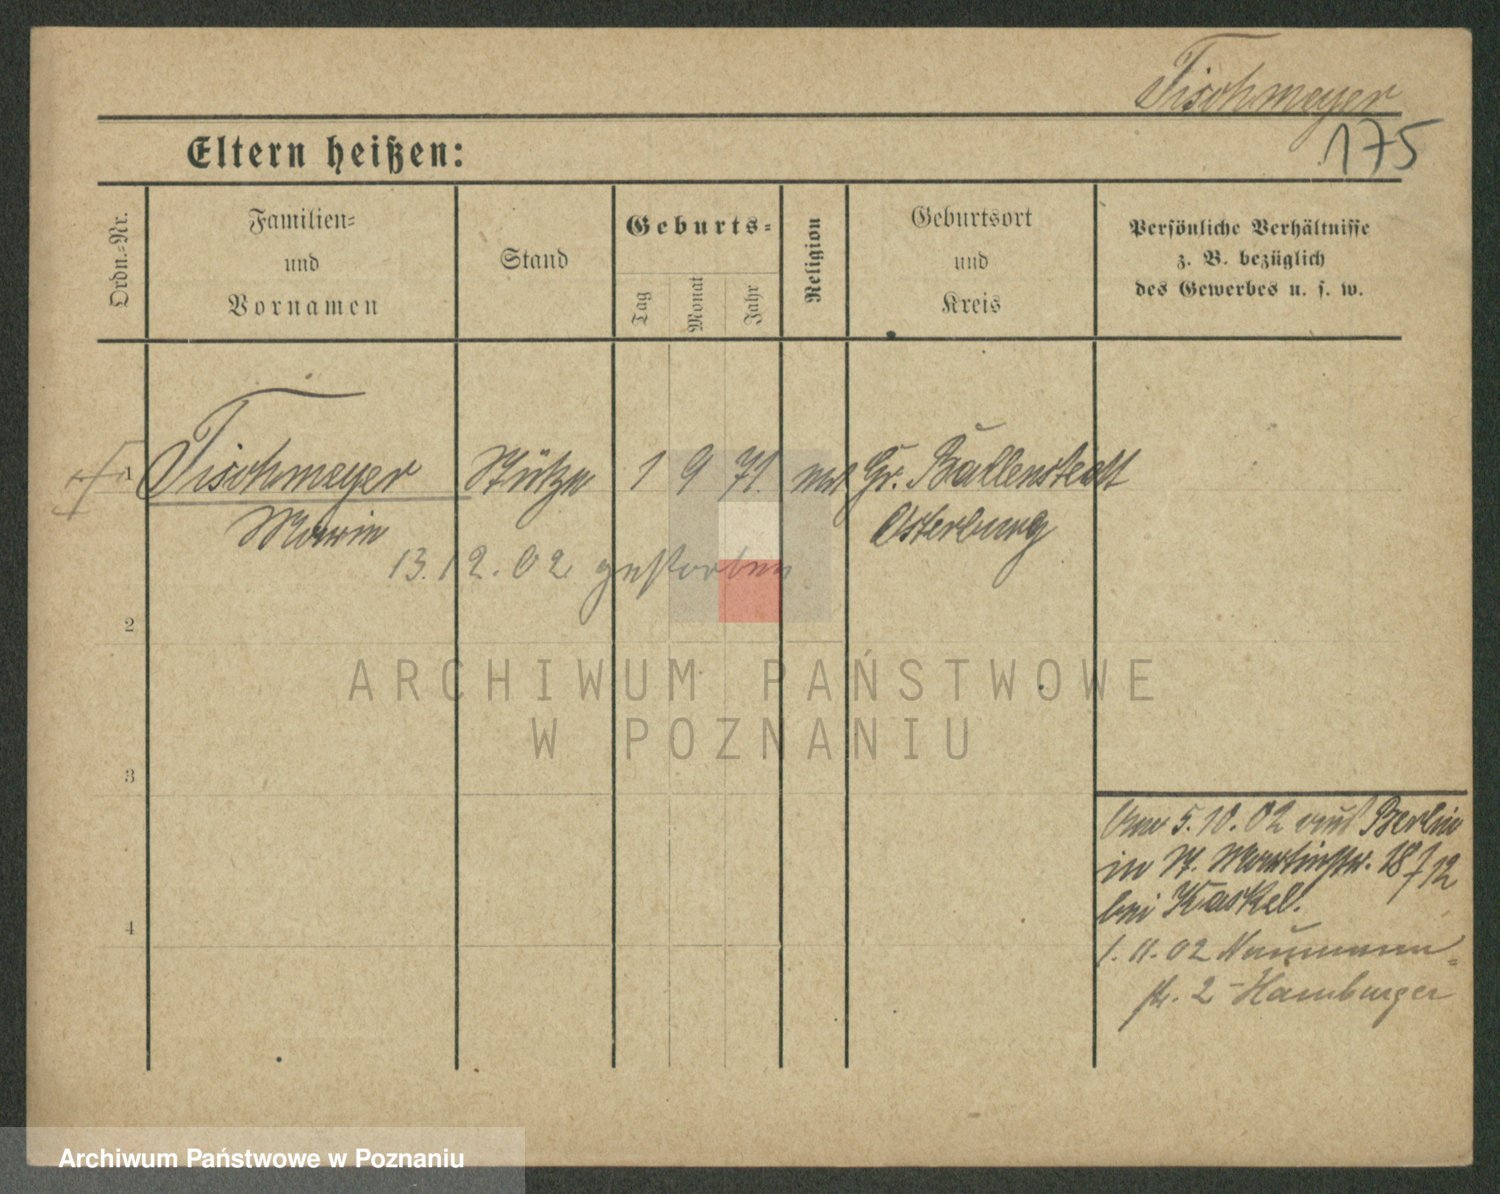 Tischmeyer
175
Eltern heißen:
Ordn.-Nr.
Familien-
und
Vornamen
Stand
Geburts-
Tag
Monat
Jahr
Religion
Geburtsort
und
Kreis
Persönliche Verhältnisse
z. B. bezüglich
des Gewerbes u. s. w.
1 Tischmeyer Stütze 1 9 71. Gr. Ballerstedt
Marie Osterburg
13.12.02 gestorben
2
3
4
5.10.02 aus Berlin
in St. Martinstr. 18
bei Kaskel.
1.11.02 Naumann-
str. 2 Hamburger
ARCHIWUM PAŃSTWOWE
W POZNANIU
Archiwum Państwowe w Poznaniu